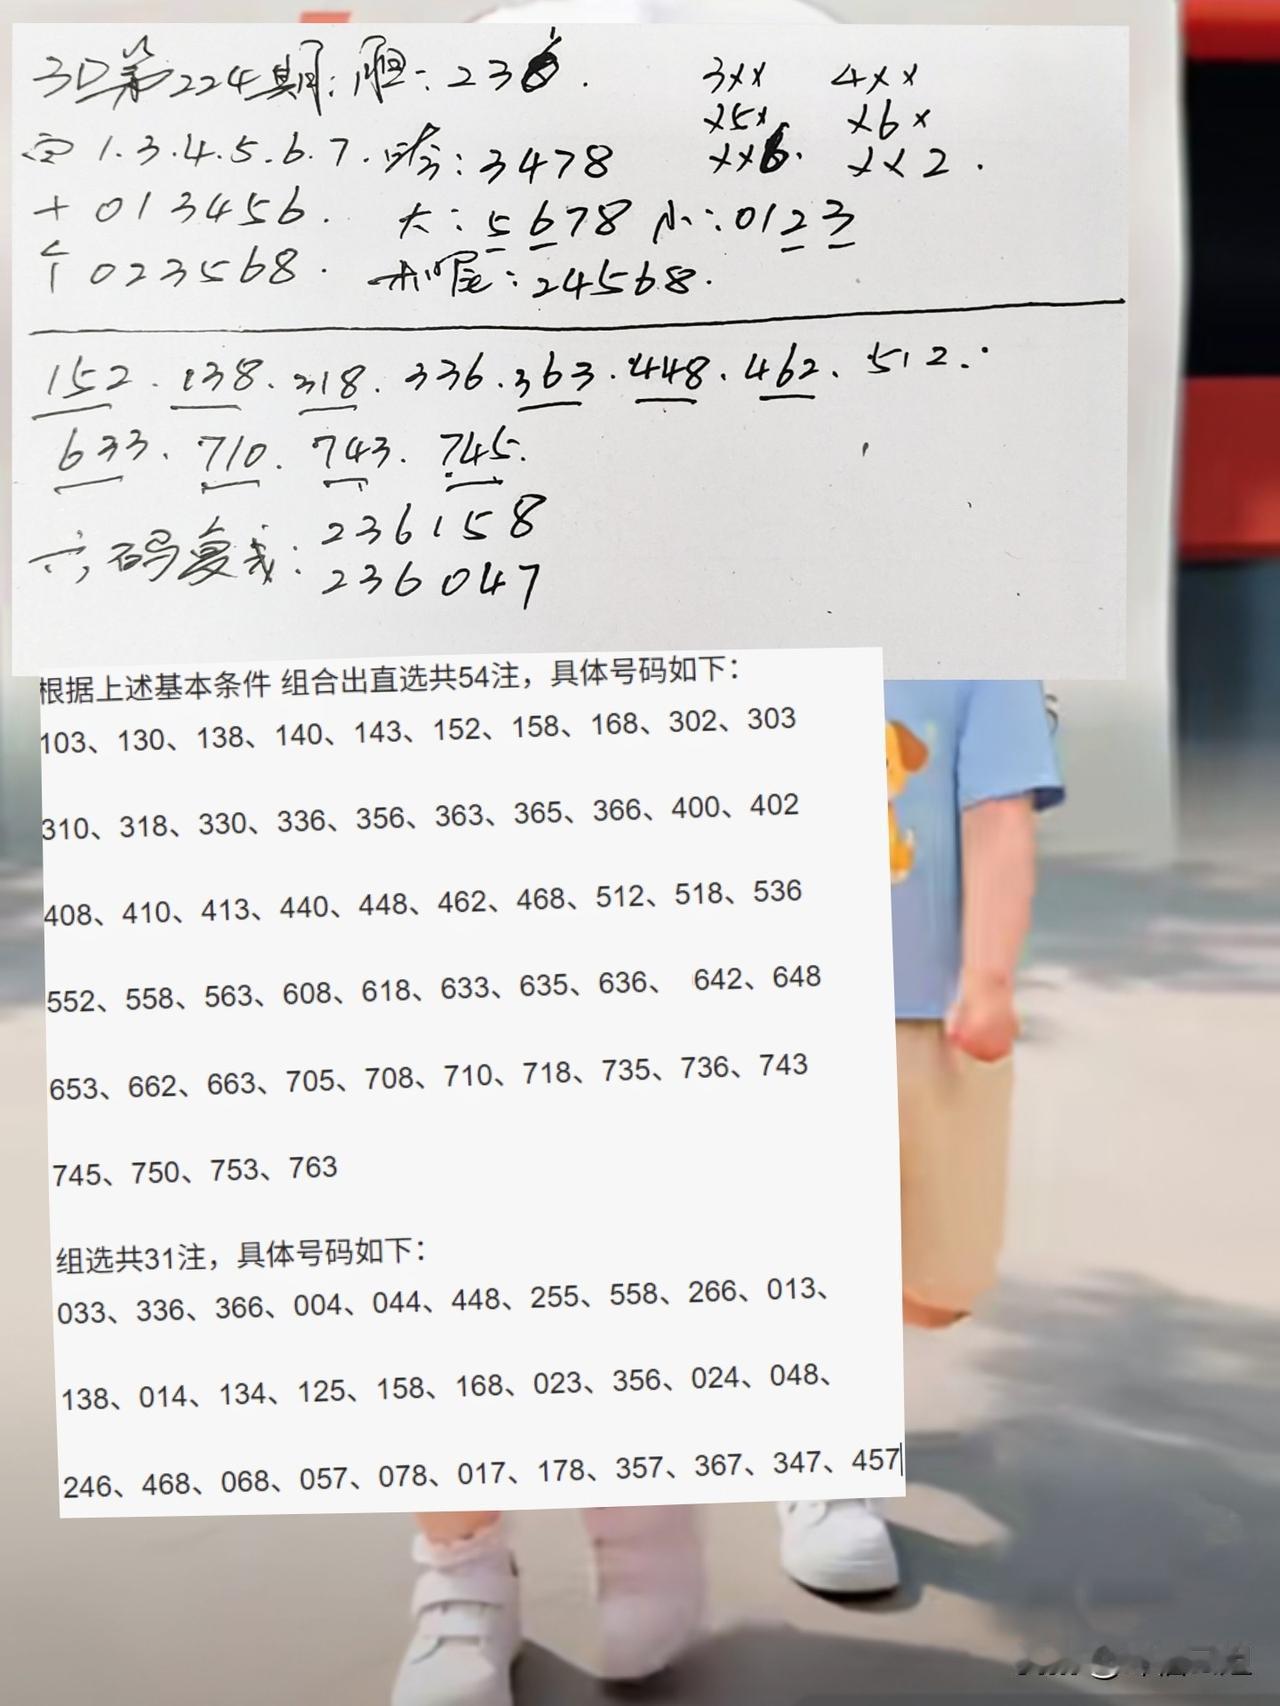 3D第224期：胆：236.
3×× 4××
×5× ×6×
××6. ××2.
百 1.3.4.5.6.7. 跨：3478
十 013456. 大：5678 小：0123
个 023568. 和尾：24568.
152.138.318.336.363.448.462.512.
633.710.743.745.
六码复式：236158
236047
根据上述基本条件 组合出直选共54注，具体号码如下：
103、130、138、140、143、152、158、168、302、303
310、318、330、336、356、363、365、366、400、402
408、410、413、440、448、462、468、512、518、536
552、558、563、608、618、633、635、636、 642、648
653、662、663、705、708、710、718、735、736、743
745、750、753、763
组选共31注，具体号码如下：
033、336、366、004、044、448、255、558、266、013、
138、014、134、125、158、168、023、356、024、048、
246、468、068、057、078、017、178、357、367、347、457